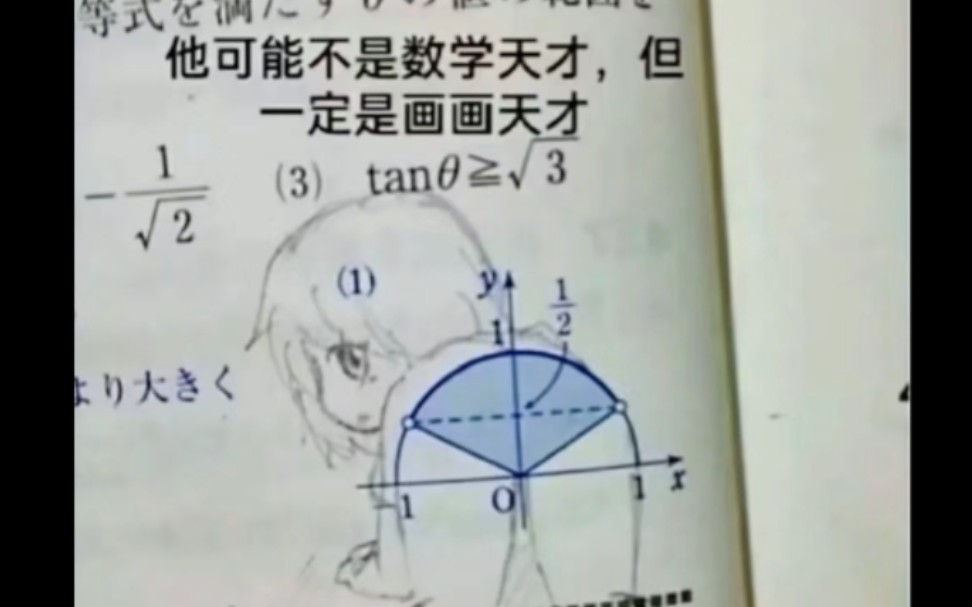 等式を満たすθの値の範囲を
他可能不是数学天才，但
一定是画画天才
-1/√2 (3) tanθ≧√3
(1)
y
1
1/2
より大きく
1 O 1 x